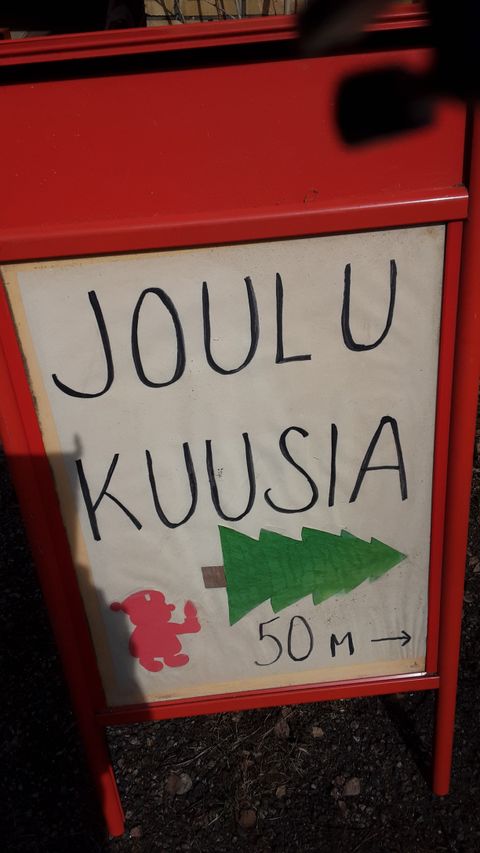 JOULU
KUUSIA
50 M →